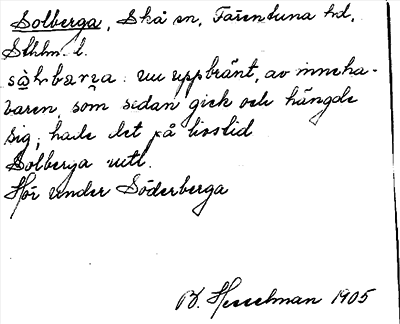 Solberga, Skå sn, Färentuna hd,
Sthlm. l.
nu uppbränt, av inneha-
varen, som sedan gick och hängde
sig; hade det på livstid
Solberga utl.
Hör under Söderberga
B. Hesselman 1905